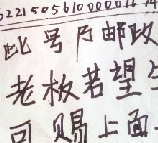 0221505610000016 14
此号内邮政
老板若望
可赐上面